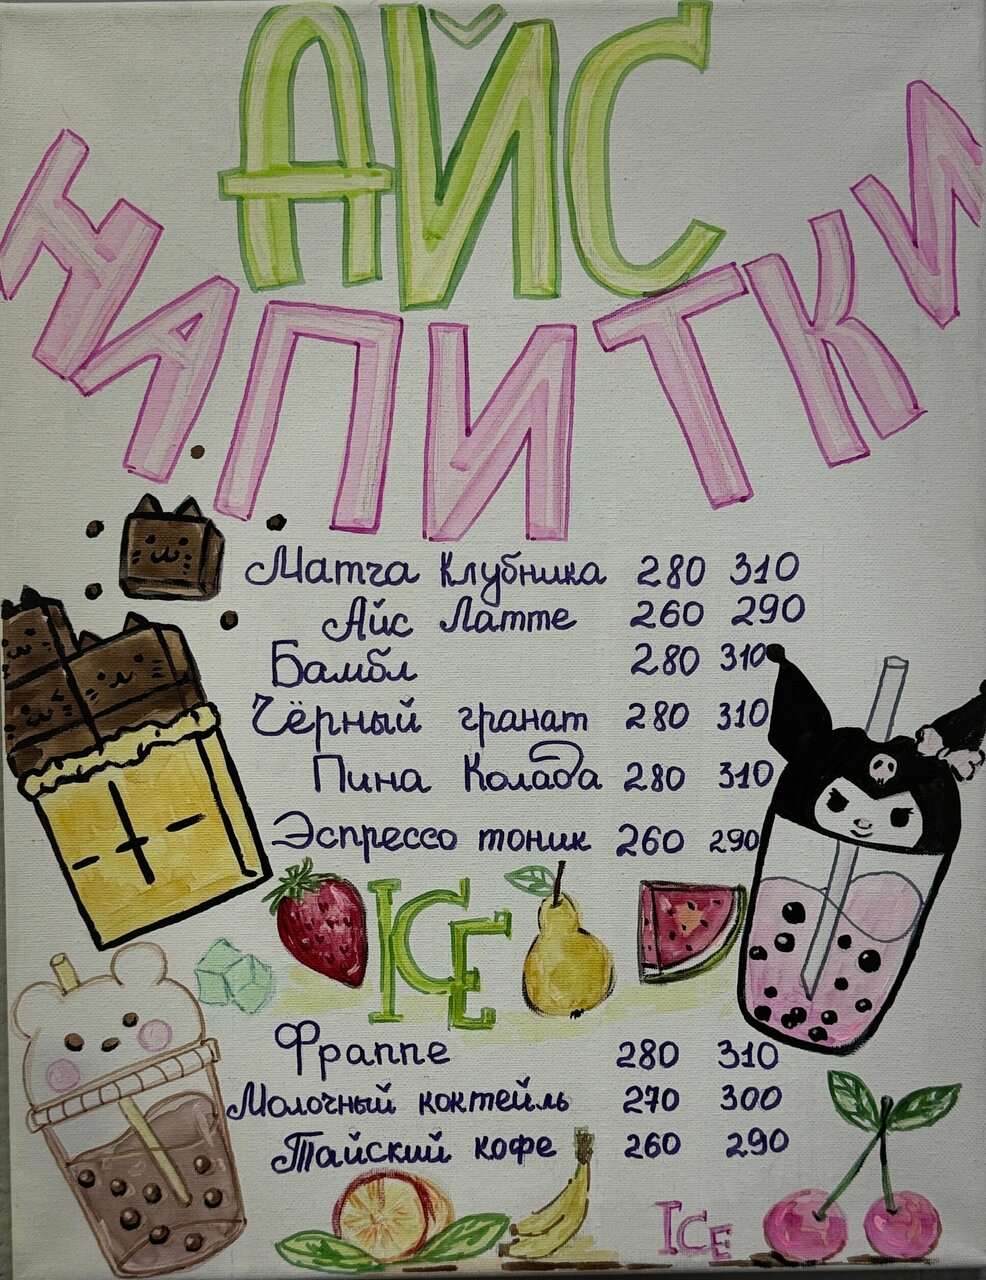 АЙС
НАПИТКИ
Матча Клубника 280 310
Айс Латте 260 290
Бамбл 280 310
Чёрный гранат 280 310
Пина Колада 280 310
Эспрессо тоник 260 290
ICE
Фраппе 280 310
Молочный коктейль 270 300
Тайский кофе 260 290
ICE